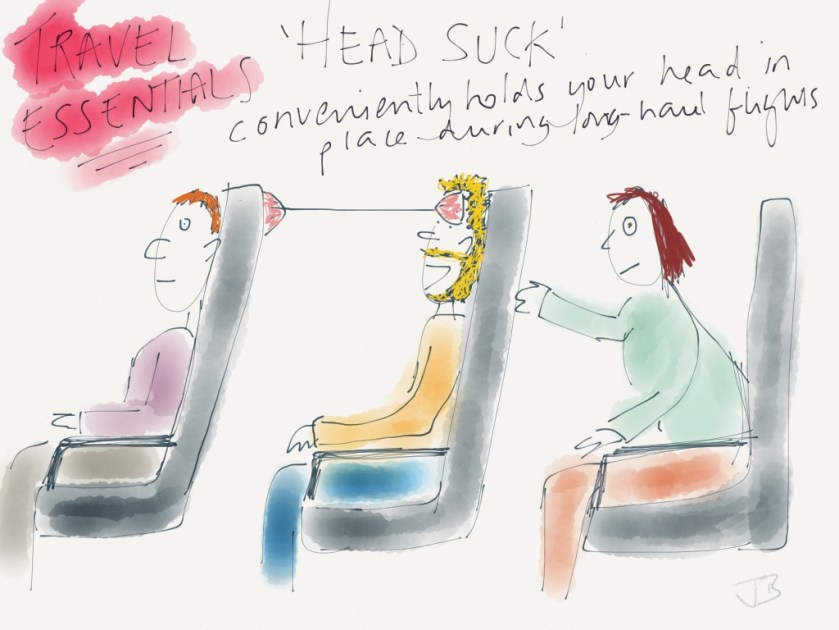 TRAVEL
ESSENTIALS
'HEAD SUCK'
conveniently holds your head in
place during long-haul flights
JB